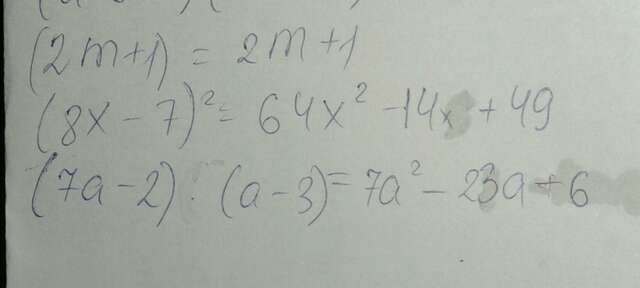 (2m+1) = 2m+1
(8x-7)² = 64x² -14x +49
(7a-2) · (a-3) = 7a² - 23a + 6